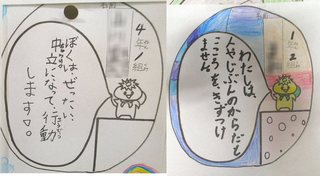 4年
1組
ぼくは、ぜったい、
中立になって、行動
します。
1年
2組
わたしは、
人やじぶんのからだも
こころを、きずつけ
ません。